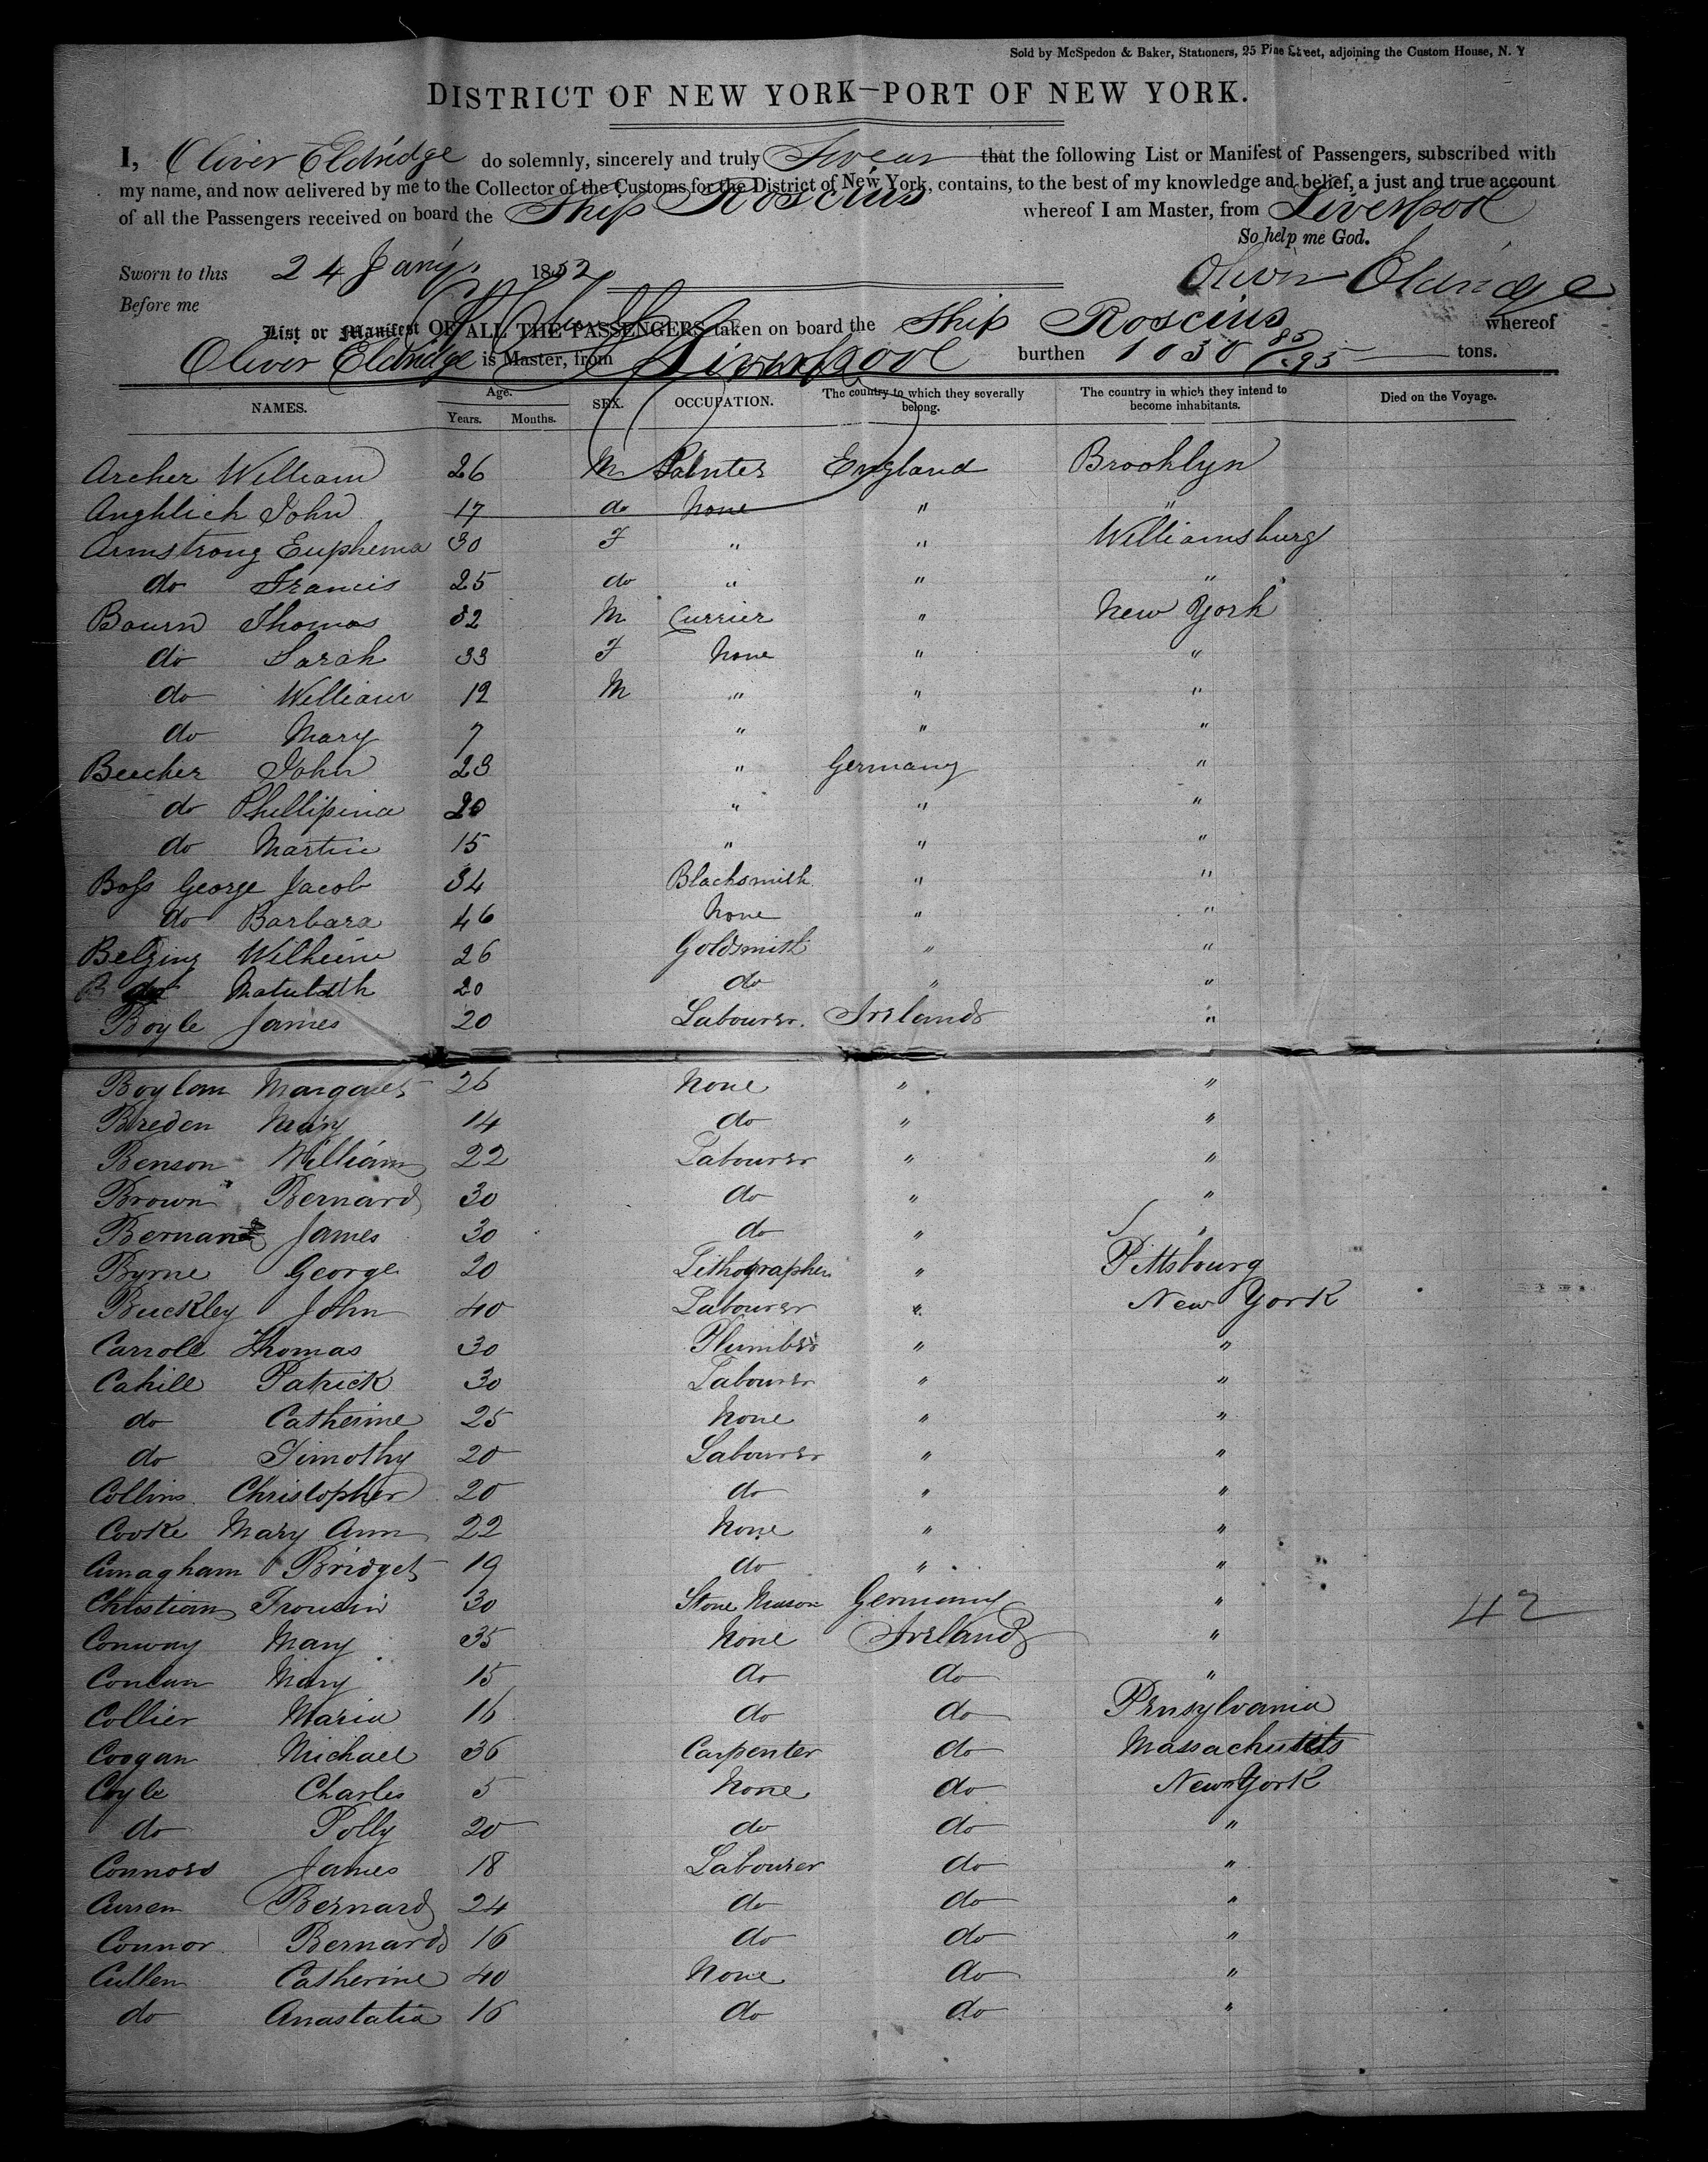 Sold by McSpedon & Baker, Stationers, 25 Pine Street, adjoining the Custom House, N. Y
DISTRICT OF NEW YORK—PORT OF NEW YORK.
I, Oliver Eldridge do solemnly, sincerely and truly Swear that the following List or Manifest of Passengers, subscribed with
my name, and now delivered by me to the Collector of the Customs for the District of New York, contains, to the best of my knowledge and belief, a just and true account
of all the Passengers received on board the Ship Roscius whereof I am Master, from Liverpool
So help me God.
Sworn to this 24 Jany. 1852 Oliver Eldridge
Before me
List or Manifest OF ALL THE PASSENGERS taken on board the Ship Roscius whereof
Oliver Eldridge is Master, from Liverpool burthen 1030 85/95 tons.
NAMES. Age. Years. Months. SEX. OCCUPATION. The country to which they severally belong. The country in which they intend to become inhabitants. Died on the Voyage.
Archer William 26 M Painter England Brooklyn
Anghlich John 17 do None " "
Armstrong Euphema 30 F " " Williamsburg
do Francis 25 do " " "
Bourn Thomas 32 M Currier " New York
do Sarah 33 F None " "
do William 12 M " " "
do Mary 7 " " "
Beecher John 23 " Germany "
do Phillipina 20 " " "
do Martin 15 " " "
Boſs George Jacob 34 Blacksmith " "
do Barbara 46 None " "
Belzing Wilheim 26 Goldsmith " "
B do Matuldth 20 do " "
Boyle James 20 Labourer. Ireland "
Boylan Margaret 26 None " "
Breden Mary 14 do " "
Benson William 22 Labourer " "
Brown Bernard 30 do " "
Bernand James 30 do " "
Byrne George 20 Lithographer " Pittsbourg
Buckley John 40 Labourer " New York
Carroll Thomas 30 Plumber " "
Cahill Patrick 30 Labourer " "
do Catherine 25 None " "
do Timothy 20 Labourer " "
Collins Christopher 20 do " "
Cooke Mary Ann 22 None " "
Cunagham Bridget 19 do " "
Christian Frousin 30 Stone Mason Germany "
42
Conway Mary 35 None Ireland "
Conlan Mary 15 do do "
Collier Maria 16 do do Pensylvania
Coogan Michael 36 Carpenter do Massachusetts
Coyle Charles 5 None do New York
do Polly 20 do do "
Connors James 18 Labourer do "
Curren Bernard 24 do do "
Connor Bernard 16 do do "
Cullen Catherine 40 None do "
do Anastatia 16 do do "